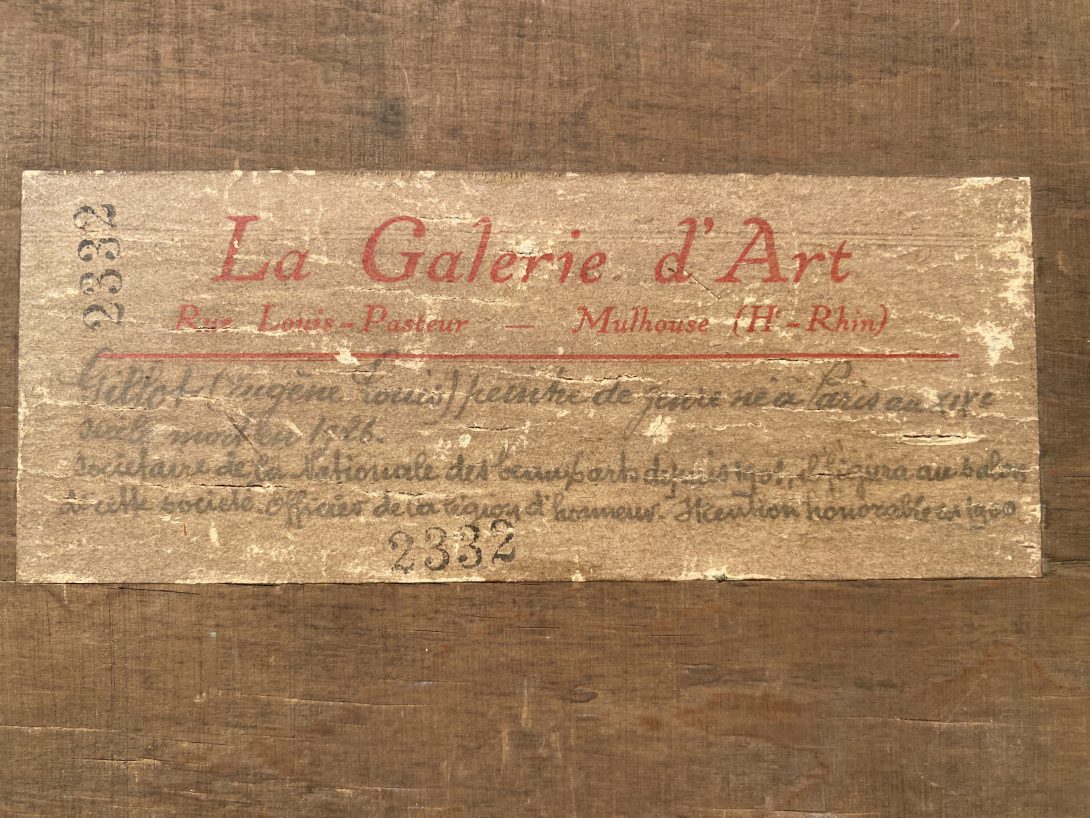 2332
La Galerie d'Art
Rue Louis-Pasteur — Mulhouse (Ht-Rhin)
Gillot (Eugène Louis) peintre de genre né à Paris au XIXe
siècle mort en 1926.
Sociétaire de la Nationale des beaux arts depuis 1901, il figura au Salon
de cette société. Officier de la légion d'honneur. Mention honorable en 1900
2332